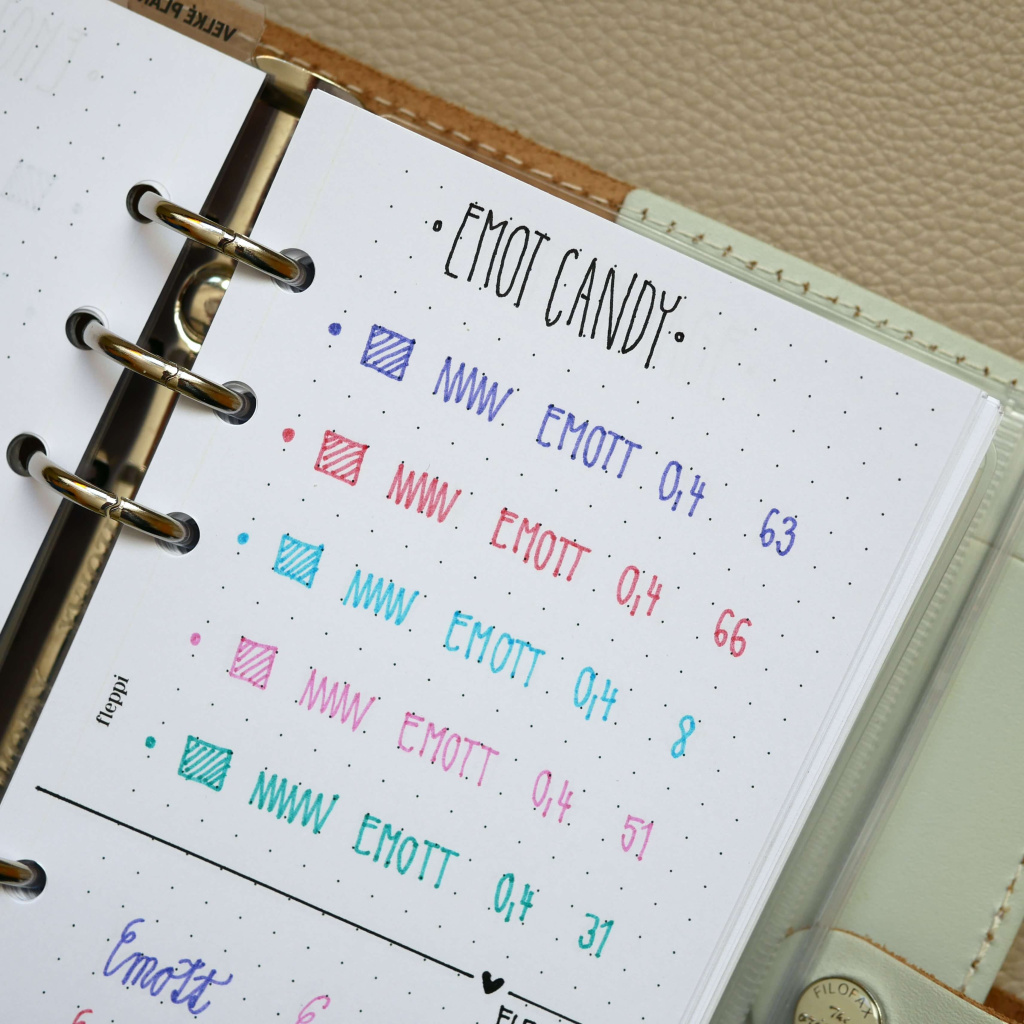 VELKÉ PLÁN
EMOT CANDY
EMOTT 0,4 63
EMOTT 0,4 66
EMOTT 0,4 8
EMOTT 0,4 51
EMOTT 0,4 31
fleppi
Emott
FILOFAX